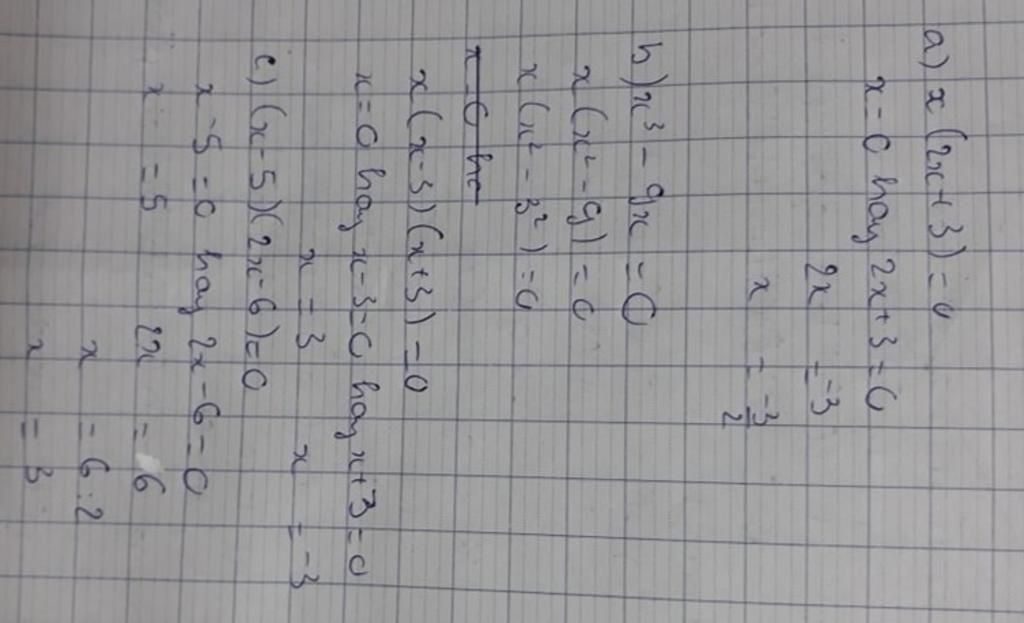 a) x (2x+3) = 0
x = 0 hay 2x+3 = 0
2x = -3
x = -3/2
b) x³ - 9x = 0
x (x² - 9) = 0
x (x² - 3²) = 0
x (x-3) (x+3) = 0
x = 0 hay x-3 = 0 hay x+3 = 0
x = 3 x = -3
c) (x-5)(2x-6) = 0
x-5 = 0 hay 2x-6 = 0
x = 5 2x = 6
x = 6:2
x = 3